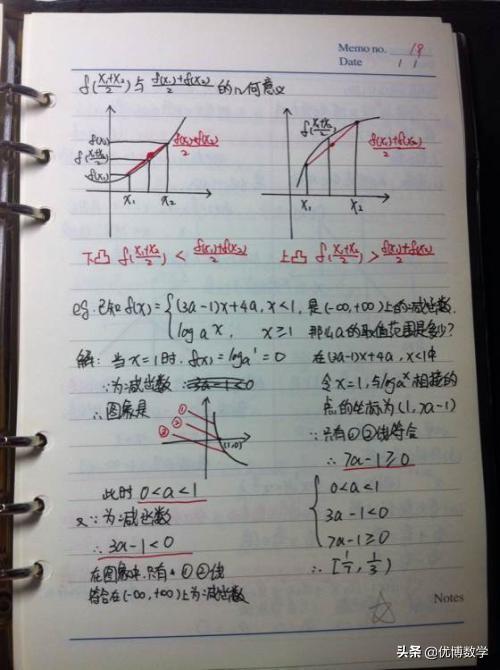 Memo no. 19
Date 1 1
f(x₁+x₂/2)与 f(x₁)+f(x₂)/2 的几何意义
f(x₂)
f(x₁+x₂/2)
f(x₁)
f(x₁)+f(x₂)/2
x₁ x₂
f(x₁+x₂/2)
f(x₁)+f(x₂)/2
x₁ x₂
下凸 f(x₁+x₂/2) < f(x₁)+f(x₂)/2
上凸 f(x₁+x₂/2) > f(x₁)+f(x₂)/2
eg. 已知 f(x) = { (3a-1)x+4a, x<1, 是(-∞,+∞)上的减函数,
logₐx, x≥1 那么a的取值范围是多少?
解: 当x=1时, f(x)=logₐ1=0
∵为减函数
∴图象是
① ② ③
(1,0)
此时 0<a<1
又∵为减函数
∴3a-1<0
在图象中,只有①②线
符合在(-∞,+∞)上为减函数
在(3a-1)x+4a, x<1中
令x=1,与logₐx相接的
点的坐标为(1,7a-1)
∵只有①②线符合
∴7a-1≥0
{ 0<a<1
3a-1<0
7a-1≥0
∴[1/7, 1/3)
Notes
头条 @优博数学